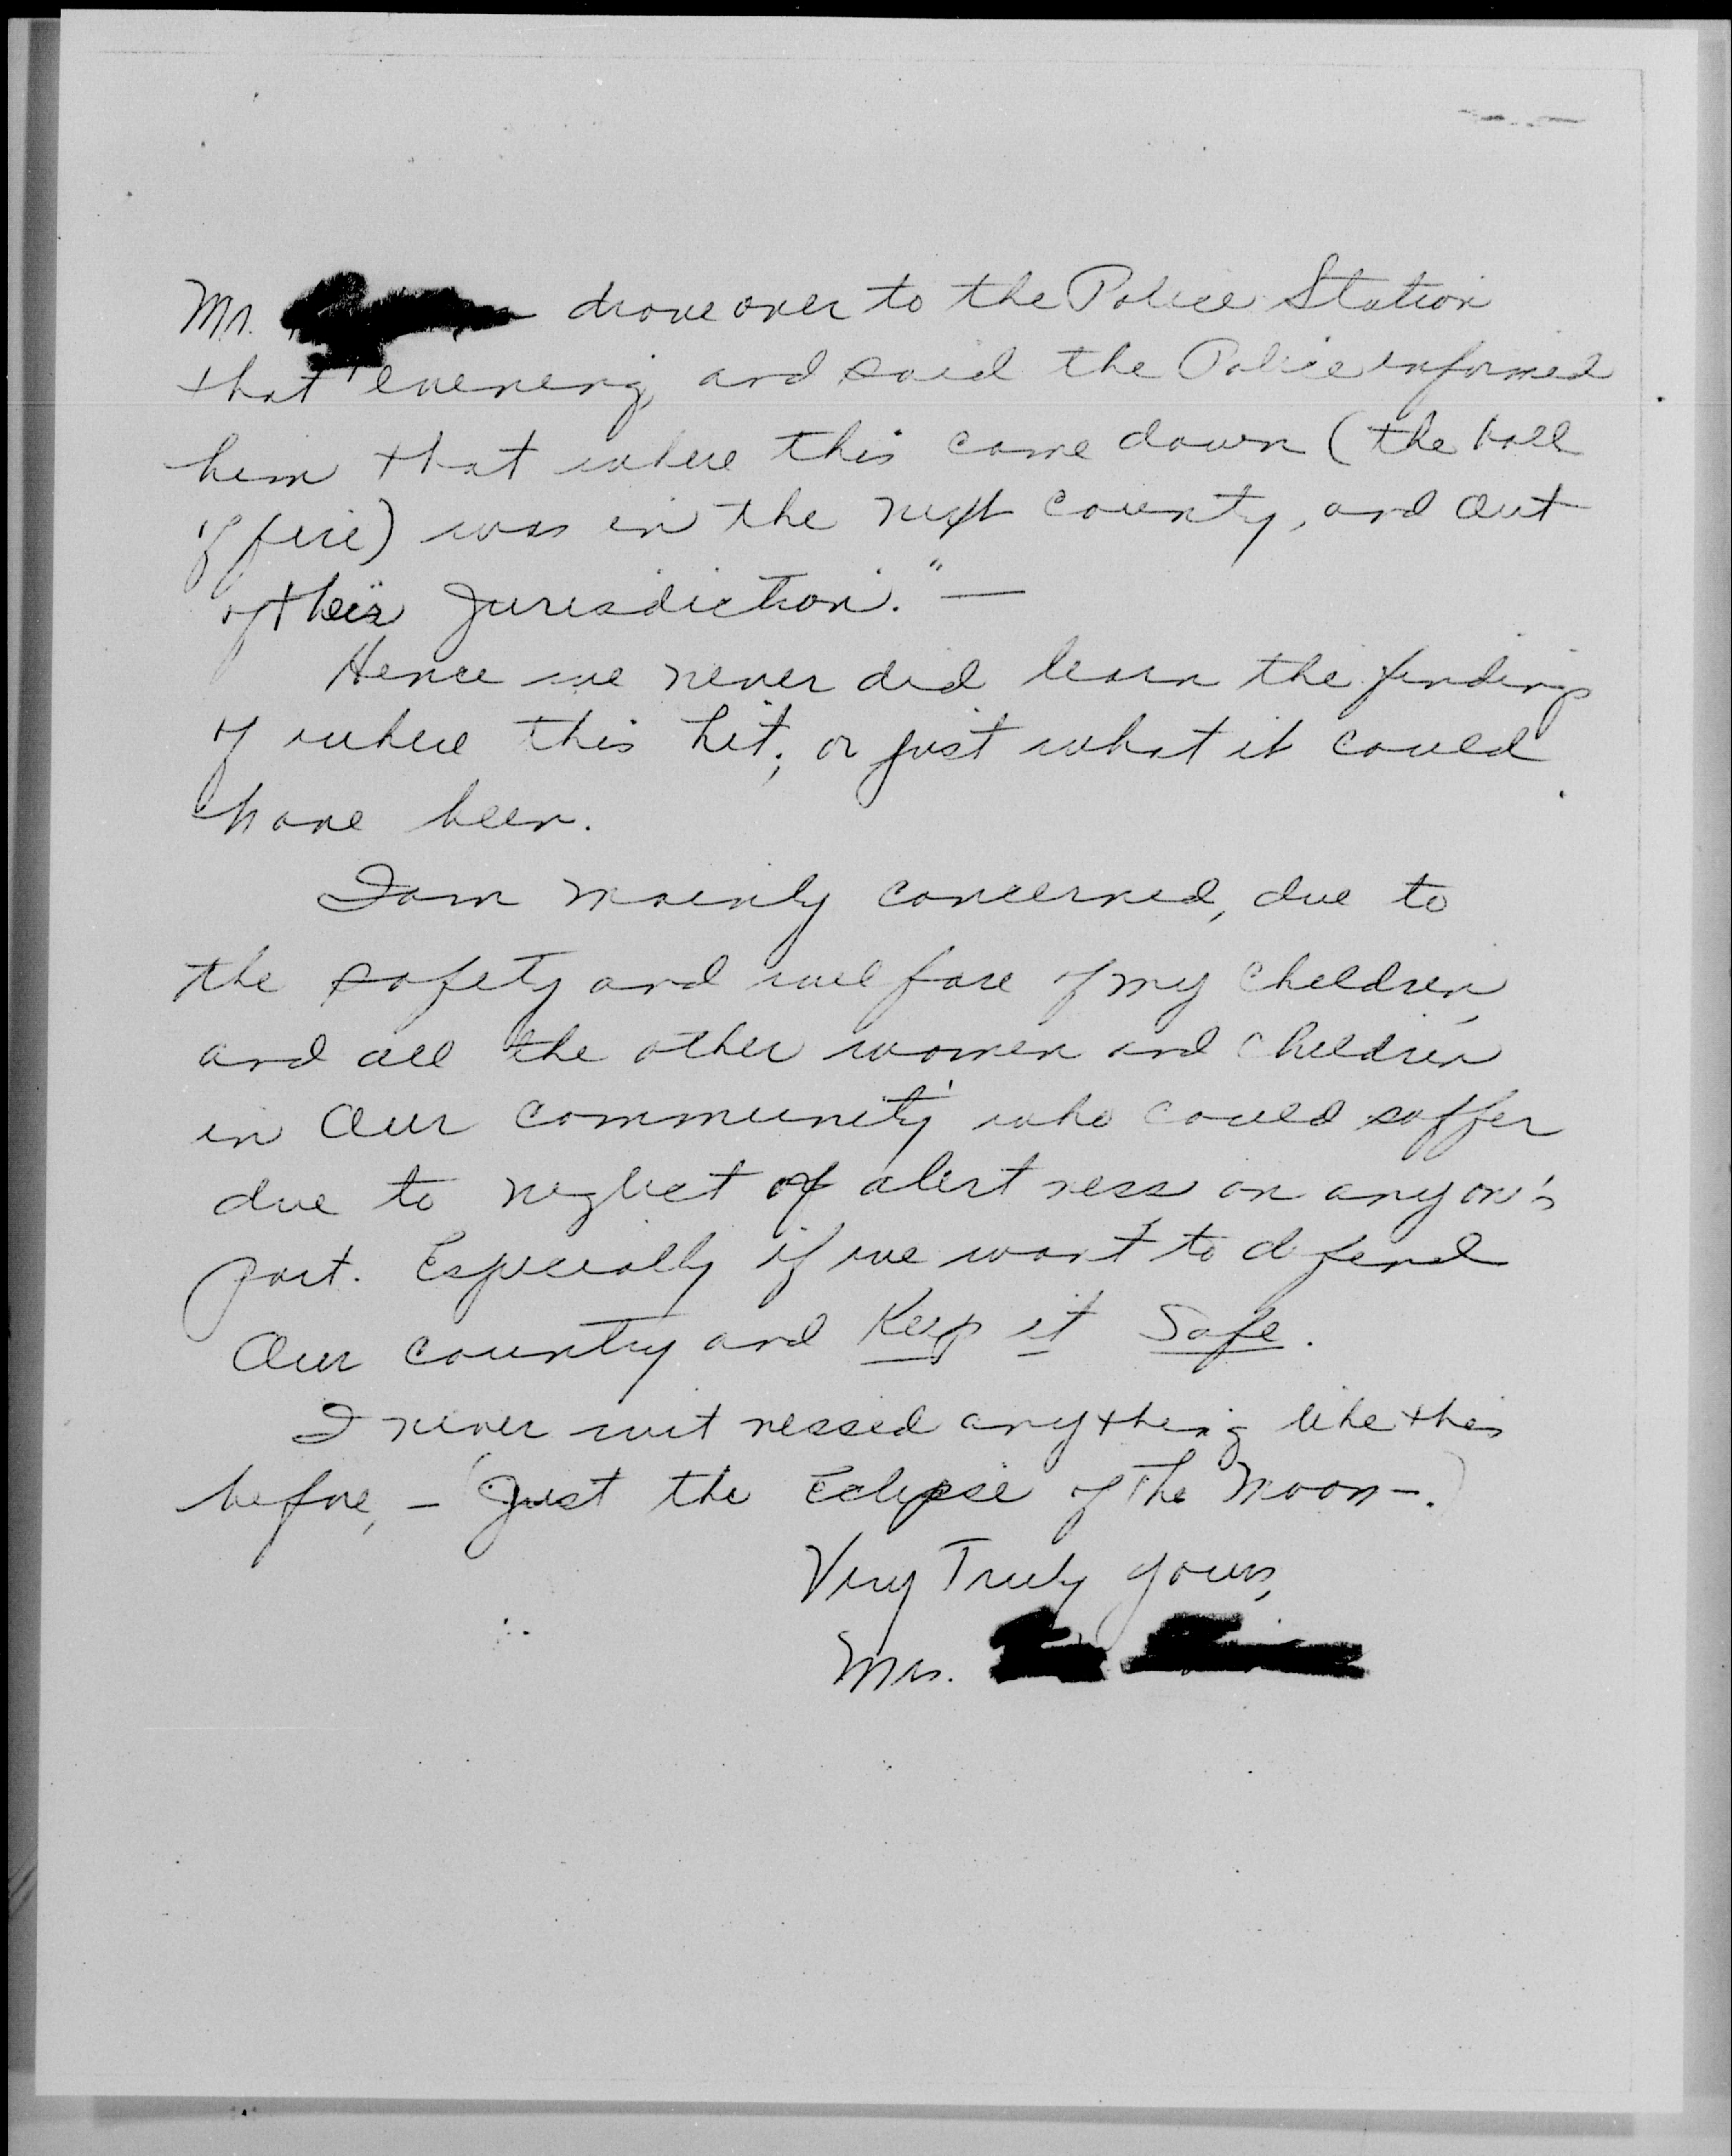 Mr. drove over to the Police Station
that evening, and said the Police informed
him that where this came down (the ball
of fire) was in the next county, and out
of their Jurisdiction." —
Hence we never did learn the findings
of where this hit; or just what it could
have been.
I am mainly concerned, due to
the safety and welfare of my children,
and all the other women and children
in our community who could suffer
due to neglect of alertness on anyone's
part. Especially if we want to defend
our country and Keep it Safe.
I never witnessed anything like this
before, - (Just the Eclipse of The Moon-.)
Very Truly yours,
Mrs.